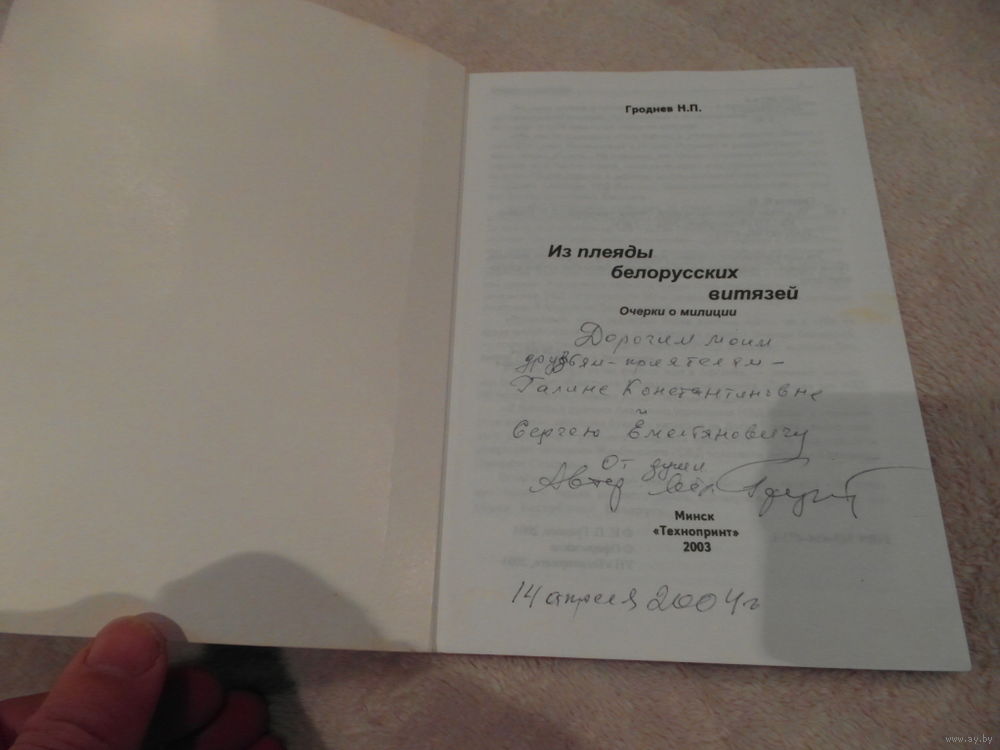 Гроднев Н.П.
Из плеяды
белорусских
витязей
Очерки о милиции
Дорогим моим
друзьям-приятелям –
Галине Константиновне
и
Сергею Емельяновичу
От души
Автор
Минск
«Технопринт»
2003
14 апреля 2004г
www.ay.by